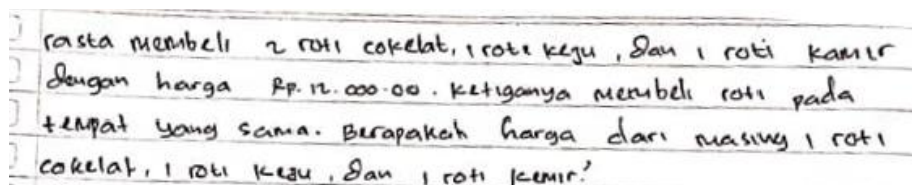 rasta membeli 2 roti cokelat, 1 roti keju, dan 1 roti kamir
dengan harga Rp. 12.000.00. ketiganya membeli roti pada
tempat yang sama. Berapakah harga dari masing 1 roti
cokelat, 1 roti keju, dan 1 roti kemir?